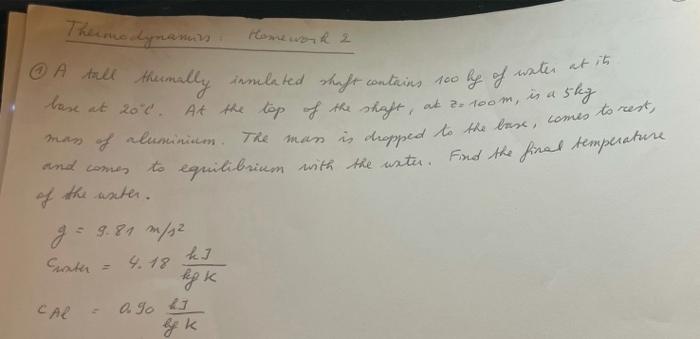 Thermodynamics: Homework 2
① A tall thermally insulated shaft contains 100 kg of water at its
base at 20°C. At the top of the shaft, at z=100m, is a 5kg
mass of aluminium. The mass is dropped to the base, comes to rest,
and comes to equilibrium with the water. Find the final temperature
of the water.
g = 9.81 m/s²
Cwater = 4.18 kJ/kg K
CAl = 0.90 kJ/kg K